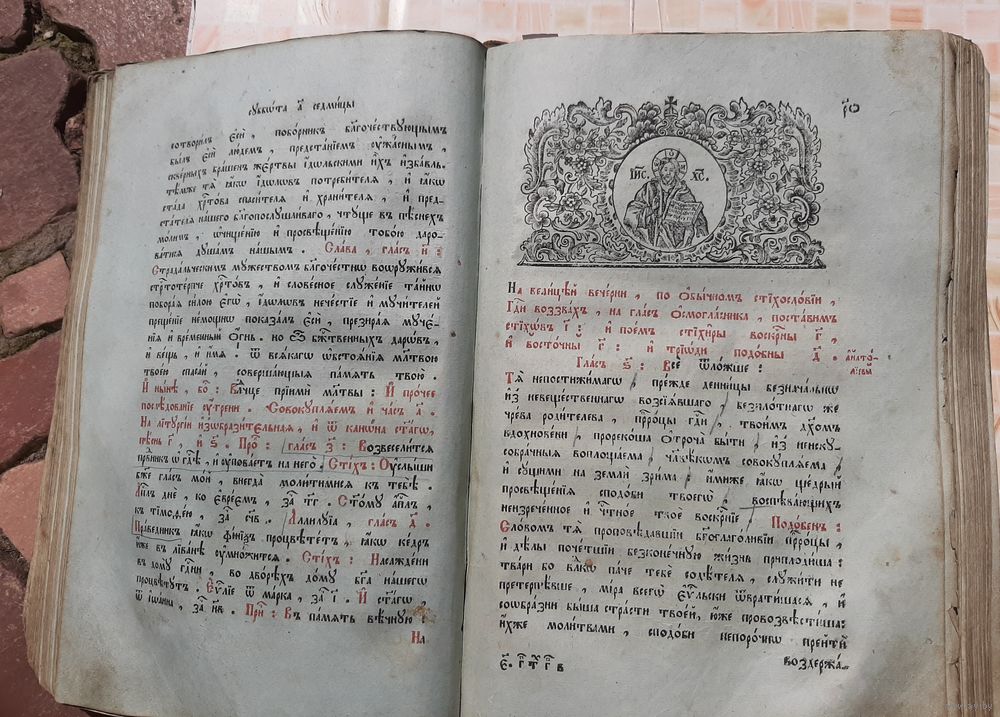 сꙋббѡ́та а҃ седми́цы
сотвори́лъ є҆сѝ, побо́рникъ бл҃гоче́ствꙋющымъ
бы́лъ є҆сѝ лю́демъ, предста́нїемъ ᲂу҆жа́снымъ,
скве́рныхъ бра́шенъ же́ртвы і҆́дѡльскими и҆̀хъ и҆зба́вль.
тѣ́мже тѧ̀ ꙗ҆́кѡ і҆́дѡлѡвъ потреби́телѧ, и҆ ꙗ҆́кѡ
ста́да хрⷭ҇то́ва спаси́телѧ и҆ храни́телѧ, и҆ пред-
ста́телѧ на́шего бл҃гопослꙋшли́ваго, чтꙋ́ще въ пѣ́снехъ
мо́лимъ, ѡ҆чище́нїю и҆ просвѣще́нїю тобо́ю даро-
ва́тисѧ дꙋша́мъ на́шымъ. Сла́ва, гла́съ и҃:
Страда́льческимъ мꙋ́жествомъ бл҃гоче́стнѡ воѡрꙋжи́всѧ
стрⷭ҇тоте́рпче хрⷭ҇то́въ, и҆ слове́сное слꙋже́нїе та́йнѡ
побора́ѧ си́лою є҆гѡ̀, і҆́дѡлѡвъ нече́стїе и҆ мꙋчи́телей
преще́нїе не́мощно показа́лъ є҆сѝ, презира́ѧ мꙋче́-
нїѧ и҆ вре́менный ѻ҆́гнь. но ѽ бж҃е́ственныхъ дарѡ́въ,
и҆ ве́щь, и҆ и҆́мѧ. ѿ всѧ́кагѡ ѡ҆бстоѧ́нїѧ мл҃твою
твое́ю спаса́й, соверша́ющыѧ па́мѧть твою̀.
И҆ ны́нѣ, бо҃: Вѧ́щше прїимѝ мл҃твы: И҆ про́чее
послѣ́дованїе ᲂу҆́трени. Совокꙋплѧ́емъ и҆ ча́съ а҃.
На лїтꙋргі́и и҆зѡбрази́тельнаѧ, и҆ ѿ канѡ́на ст҃а́гѡ,
пѣ́снь г҃, и҆ ѕ҃. Про́: гла́съ з҃: Возвесели́тсѧ
првⷣникъ ѡ҆ гдⷭ҇ѣ, и҆ ᲂу҆пова́етъ на него̀. Сті́хъ: Оу҆слы́ши
бж҃е гла́съ мо́й, внегда̀ моли́тимисѧ къ тебѣ̀.
А҆пⷭ҇лъ днѐ, ко є҆вре́ємъ, за҃ т҃г. Ст҃о́мꙋ а҆пⷭ҇лъ,
къ тїмоѳе́ю, за҃ с҃чв. А҆ллилꙋ́їа, гла́съ д҃.
Првⷣникъ ꙗ҆́кѡ фі́нїѯъ процвѣте́тъ, ꙗ҆́кѡ ке́дръ
и҆́же въ лїва́нѣ ᲂу҆мно́житсѧ. Сті́хъ: Насажде́ни
въ домꙋ̀ гдⷭ҇ни, во дво́рѣхъ до́мꙋ бг҃а на́шегѡ
процвѣтꙋ́тъ. Є҆ѵⷢ҇лїе ѿ ма́рка, за҃ і҃. И҆ ст҃а́гѡ,
ѿ і҆ѡа́нна, за҃ н҃в. При́: Въ па́мѧть вѣ́чнꙋю:
На
ІИ҃С. ХС҃.
ро҃
На вели́цѣй вече́рни, по ѻ҆бы́чномъ стїхосло́вїи,
Гдⷭ҇и воззва́хъ, на гла́съ ѻ҆смогла́сника, поста́вимъ
стїхѡ́въ і҃: и҆ пое́мъ стїхи̑ры воскрⷭ҇ны г҃,
и҆ восто́чны г҃: и҆ трїѡ́ди подо́бны д҃.
а҆нато́-
лїєвы
Гла́съ ѕ҃: Всѐ ѿло́жше:
Тѧ̀ непостижи́магѡ, пре́жде денни́цы безнача́льнѡ
и҆з̾ невеще́ственнаго возсїѧ́вшаго безпло́тнагѡ же
чре́ва роди́телева, прⷪ҇ро́цы гдⷭ҇и, твои́мъ дх҃омъ
вдохнове́ни, прореко́ша ѻ҆троча̀ бы́ти, и҆з̾ неискꙋ-
сокра́чныѧ воплоща́ема, чл҃вѣ́кѡмъ совокꙋплѧ́ема,
и҆ сꙋ́щими на землѝ зри́ма. и҆́миже ꙗ҆́кѡ ще́дрый
просвѣще́нїѧ сподо́би твоегѡ̀, воспѣва́ющихъ
неизрече́нное и҆ чⷭ҇тно́е твоѐ воскрⷭ҇нїе. Подо́бенъ:
Сло́вомъ тѧ̀ проповѣ́давшїи бг҃оглаго́ливїи прⷪ҇ро́цы,
и҆ дѣ́лы поче́тшїи безконе́чнꙋю жи́знь приплоди́ша:
тва́ри бо вл҃ко па́че тебѐ содѣ́телѧ, слꙋжи́ти не
претерпѣ́вше, мі́ра всегѡ̀ є҆ѵⷢ҇льски ѿврати́шасѧ, и҆
соѡбра́зни бы́ша стра́сти твое́й, ю҆́же провозвѣсти́ша:
и҆́хже моли́твами, сподо́би непоро́чнѡ прейтѝ
є҃. г҃
воздержа́-